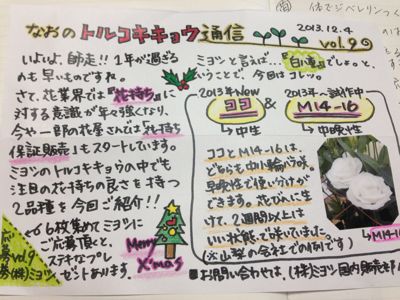 なおの トルコキキョウ 通信
2013.12.4
vol.9
いよいよ、師走!! 1年が過ぎる
のも早いものですね。
さて、花業界では『花持ち』に
対する意識が年々強くなり、
今や一部の花屋さんでは『花持ち
保証販売』もスタートしています。
ミヨシのトルコキキョウの中でも
注目の花持ちの良さを持つ
2品種を今回ご紹介!!
6枚集めてミヨシに
ご応募頂くと、
ステキなプレ
ゼントあります。
応募
vol.9
券(株)ミヨシ
Merry
X'mas
ミヨシと言えば…『白い恋』でしょっ、と
いうことで、今回はコレッ。
2013年New
ココ
→中生
&
2013年~試作中
M14-16
→中晩性
ココとM14-16は、
どちらも中小輪バラ咲。
早晩性で使い分けが
できます。花びんに生
けて、2週間以上は
いい状態で咲いていました。
(※山梨の会社での例です)
M14-16
お問い合わせは、(株)ミヨシ 国内販売部